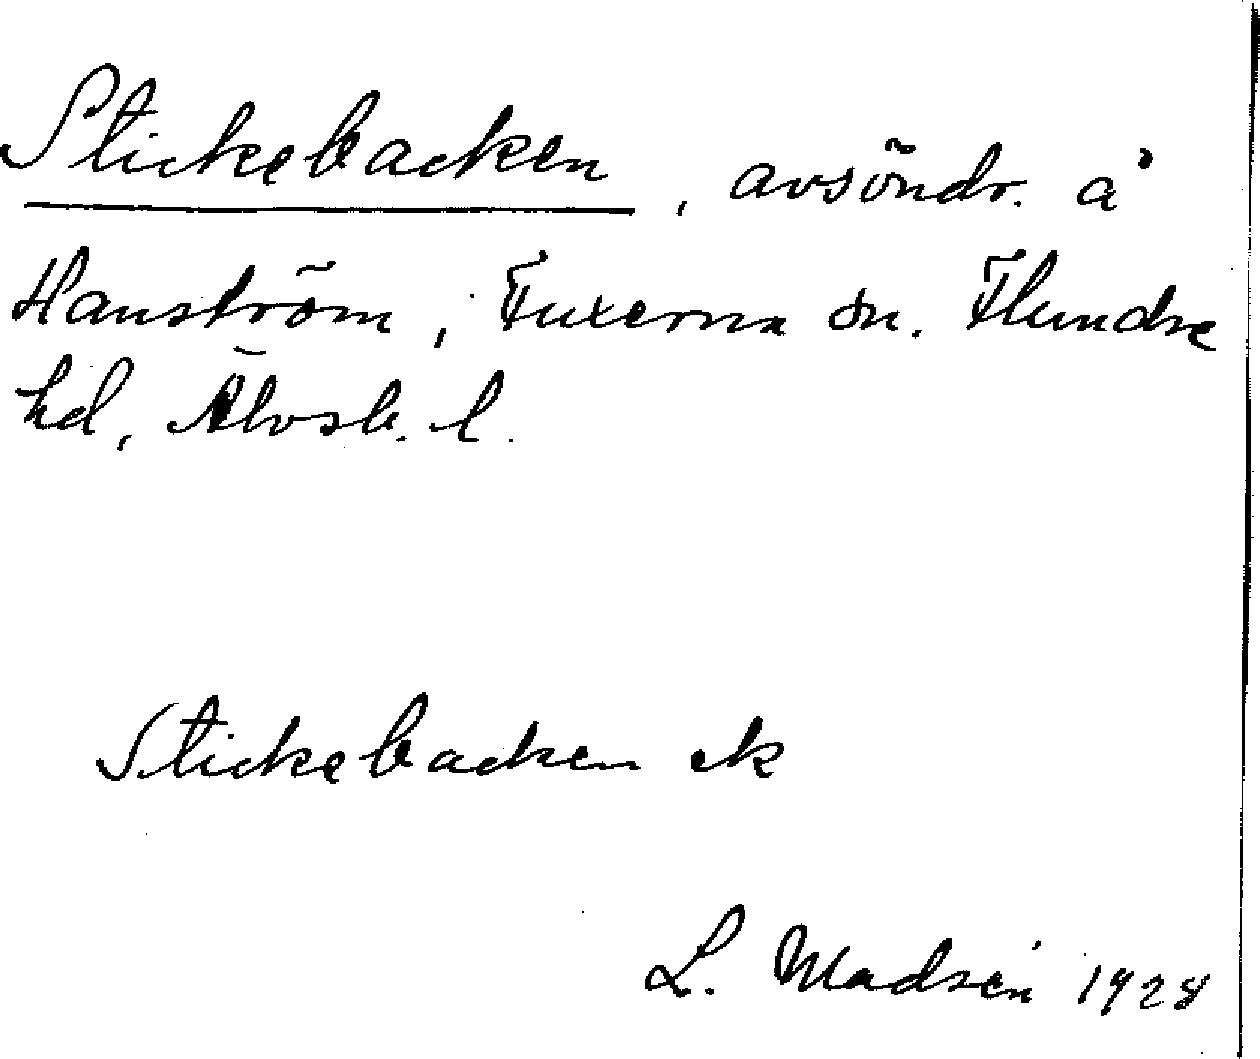 Stickebacken, avsöndr. å
Hanström, Fuxerna sn. Flundre
hd, Älvsb. l.
Stickebacken ek
L. Madsén 1928